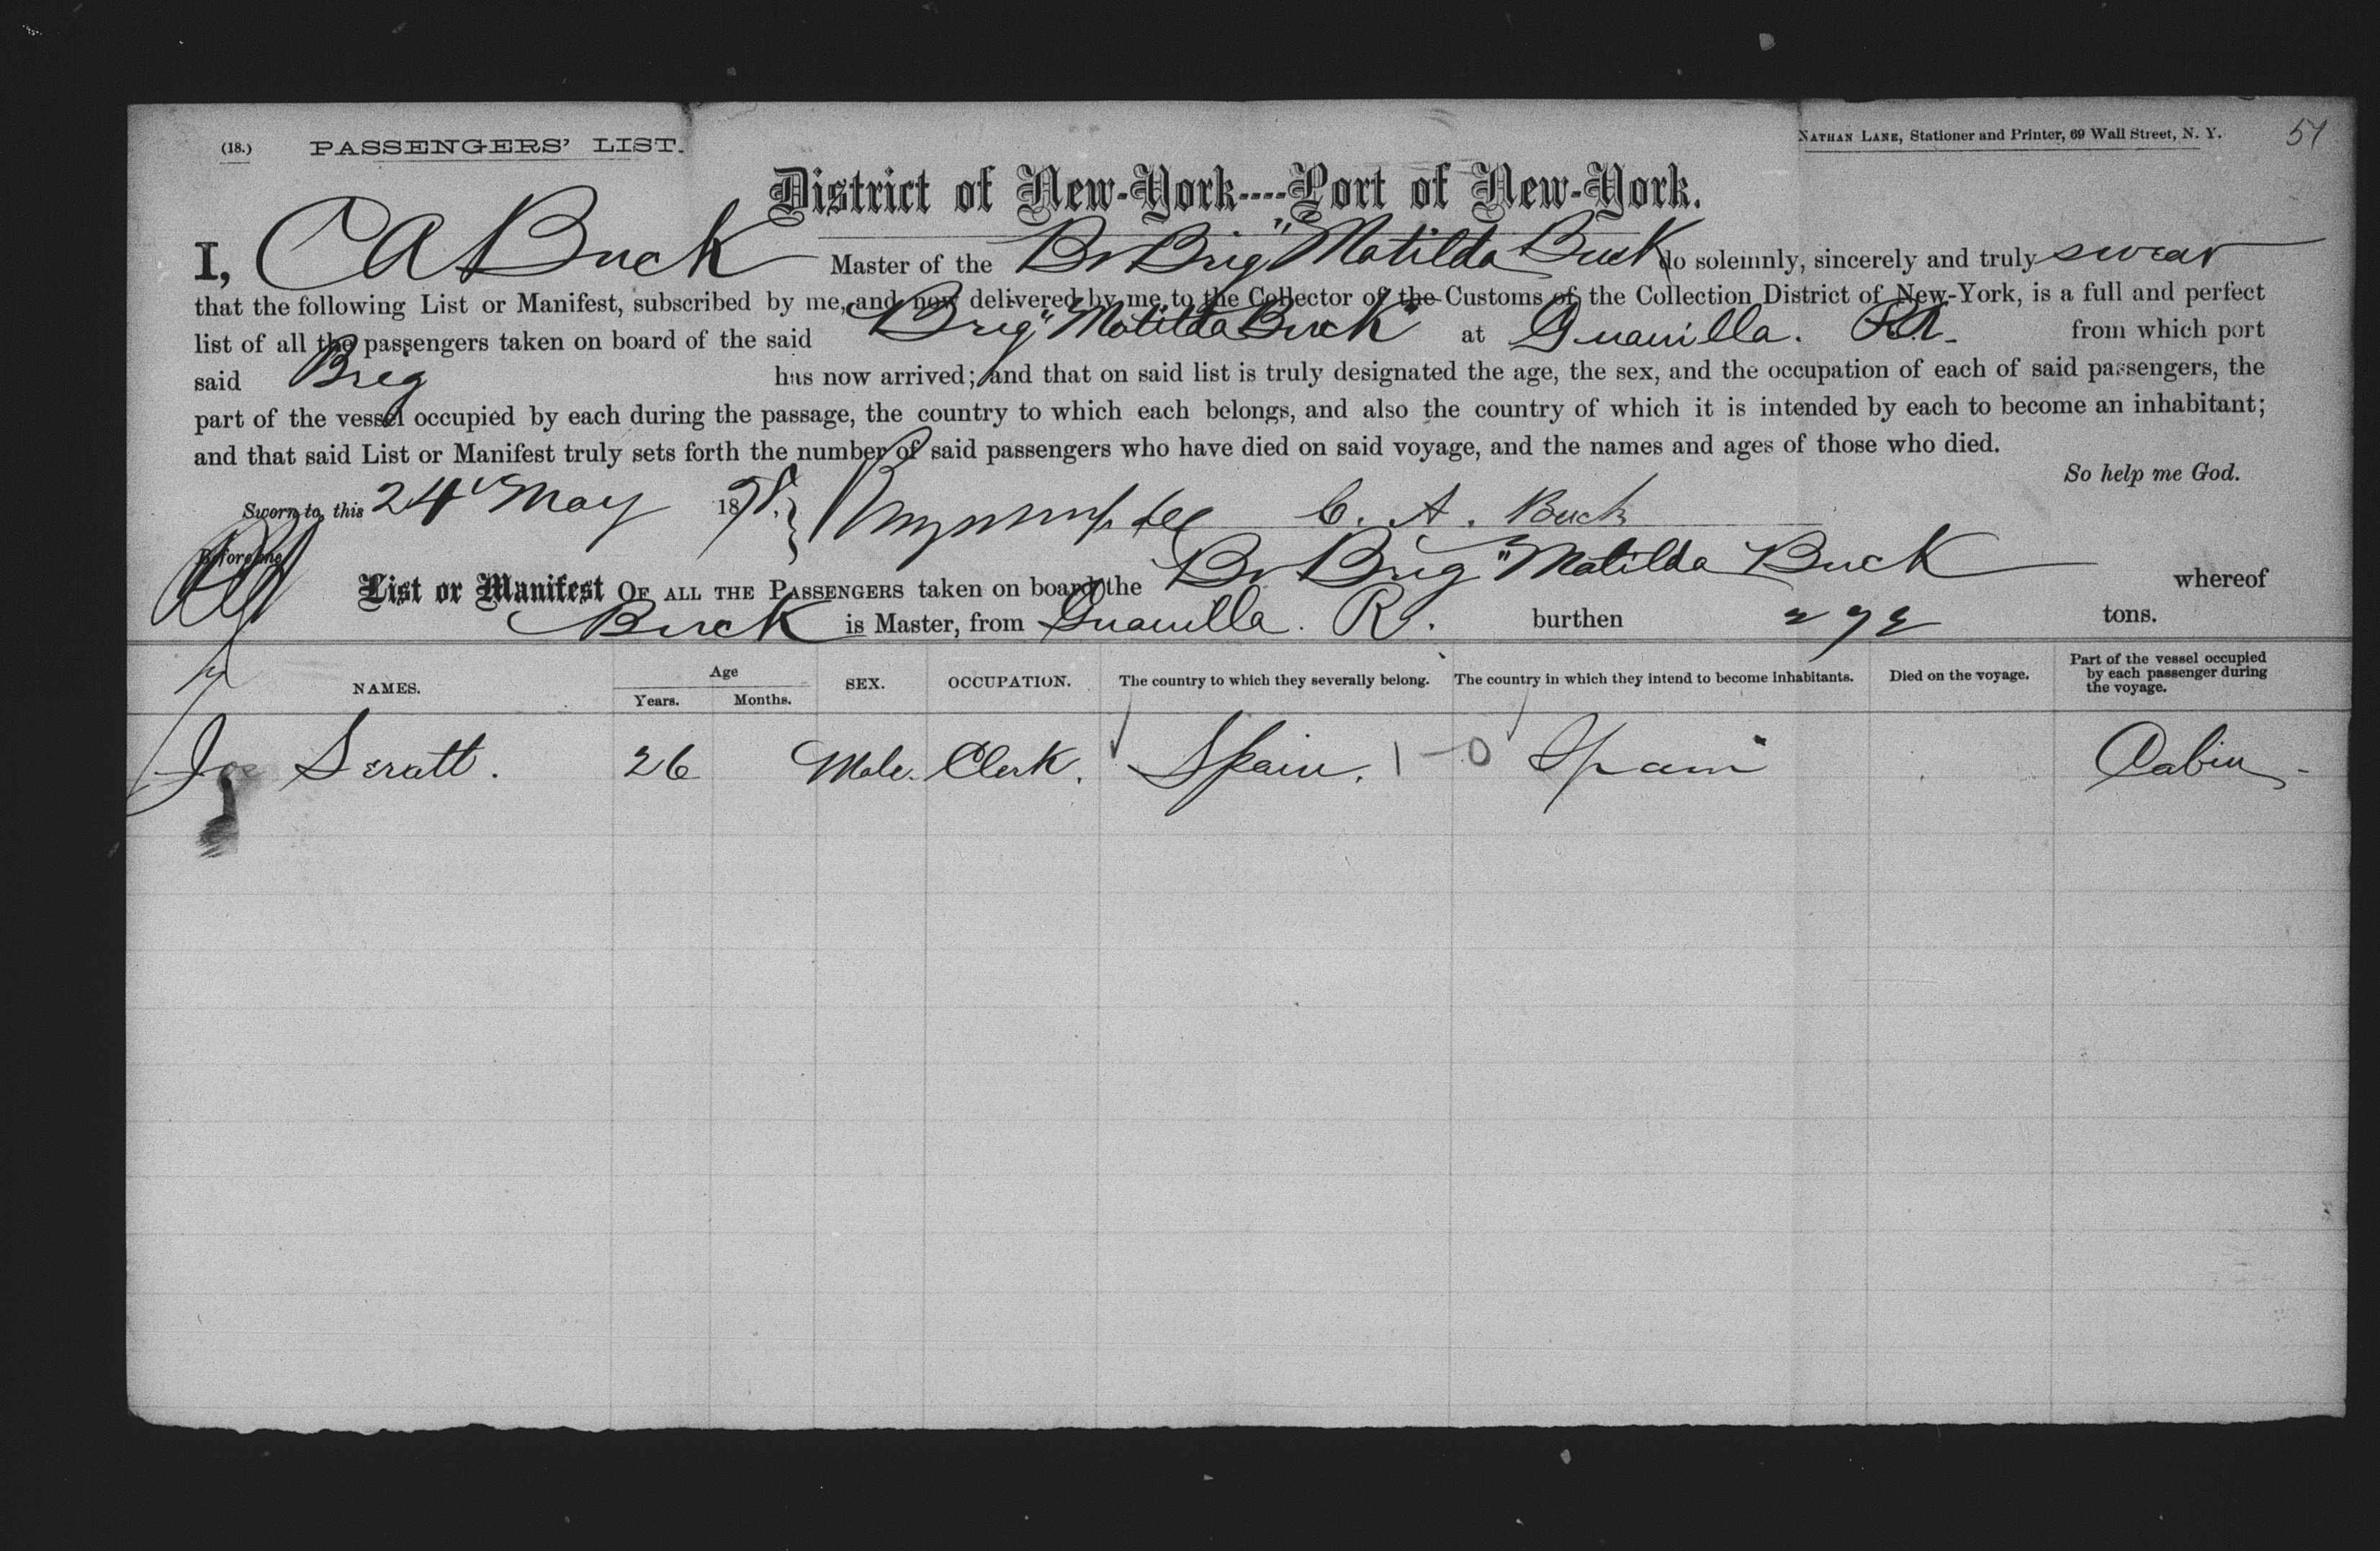 (18.) PASSENGERS' LIST. NATHAN LANE, Stationer and Printer, 69 Wall Street, N. Y. 51
District of New-York----Port of New-York.
I, C A Buck Master of the Br Brig "Matilda Buck do solemnly, sincerely and truly swear
that the following List or Manifest, subscribed by me, and now delivered by me to the Collector of the Customs of the Collection District of New-York, is a full and perfect
list of all the passengers taken on board of the said Brig "Matilda Buck" at Guanilla. P.R. from which port
said Brig has now arrived; and that on said list is truly designated the age, the sex, and the occupation of each of said passengers, the
part of the vessel occupied by each during the passage, the country to which each belongs, and also the country of which it is intended by each to become an inhabitant;
and that said List or Manifest truly sets forth the number of said passengers who have died on said voyage, and the names and ages of those who died.
So help me God.
Sworn to, this 24 May 18 C. A. Buck
Before me
List or Manifest OF ALL THE PASSENGERS taken on board the Br Brig "Matilda Buck whereof
Buck is Master, from Guanilla. burthen tons.
NAMES. Age Years. Months. SEX. OCCUPATION. The country to which they severally belong. The country in which they intend to become inhabitants. Died on the voyage. Part of the vessel occupied by each passenger during the voyage.
Seratt. 26 Male. Clerk. Spain. 1-0 Spain Cabin